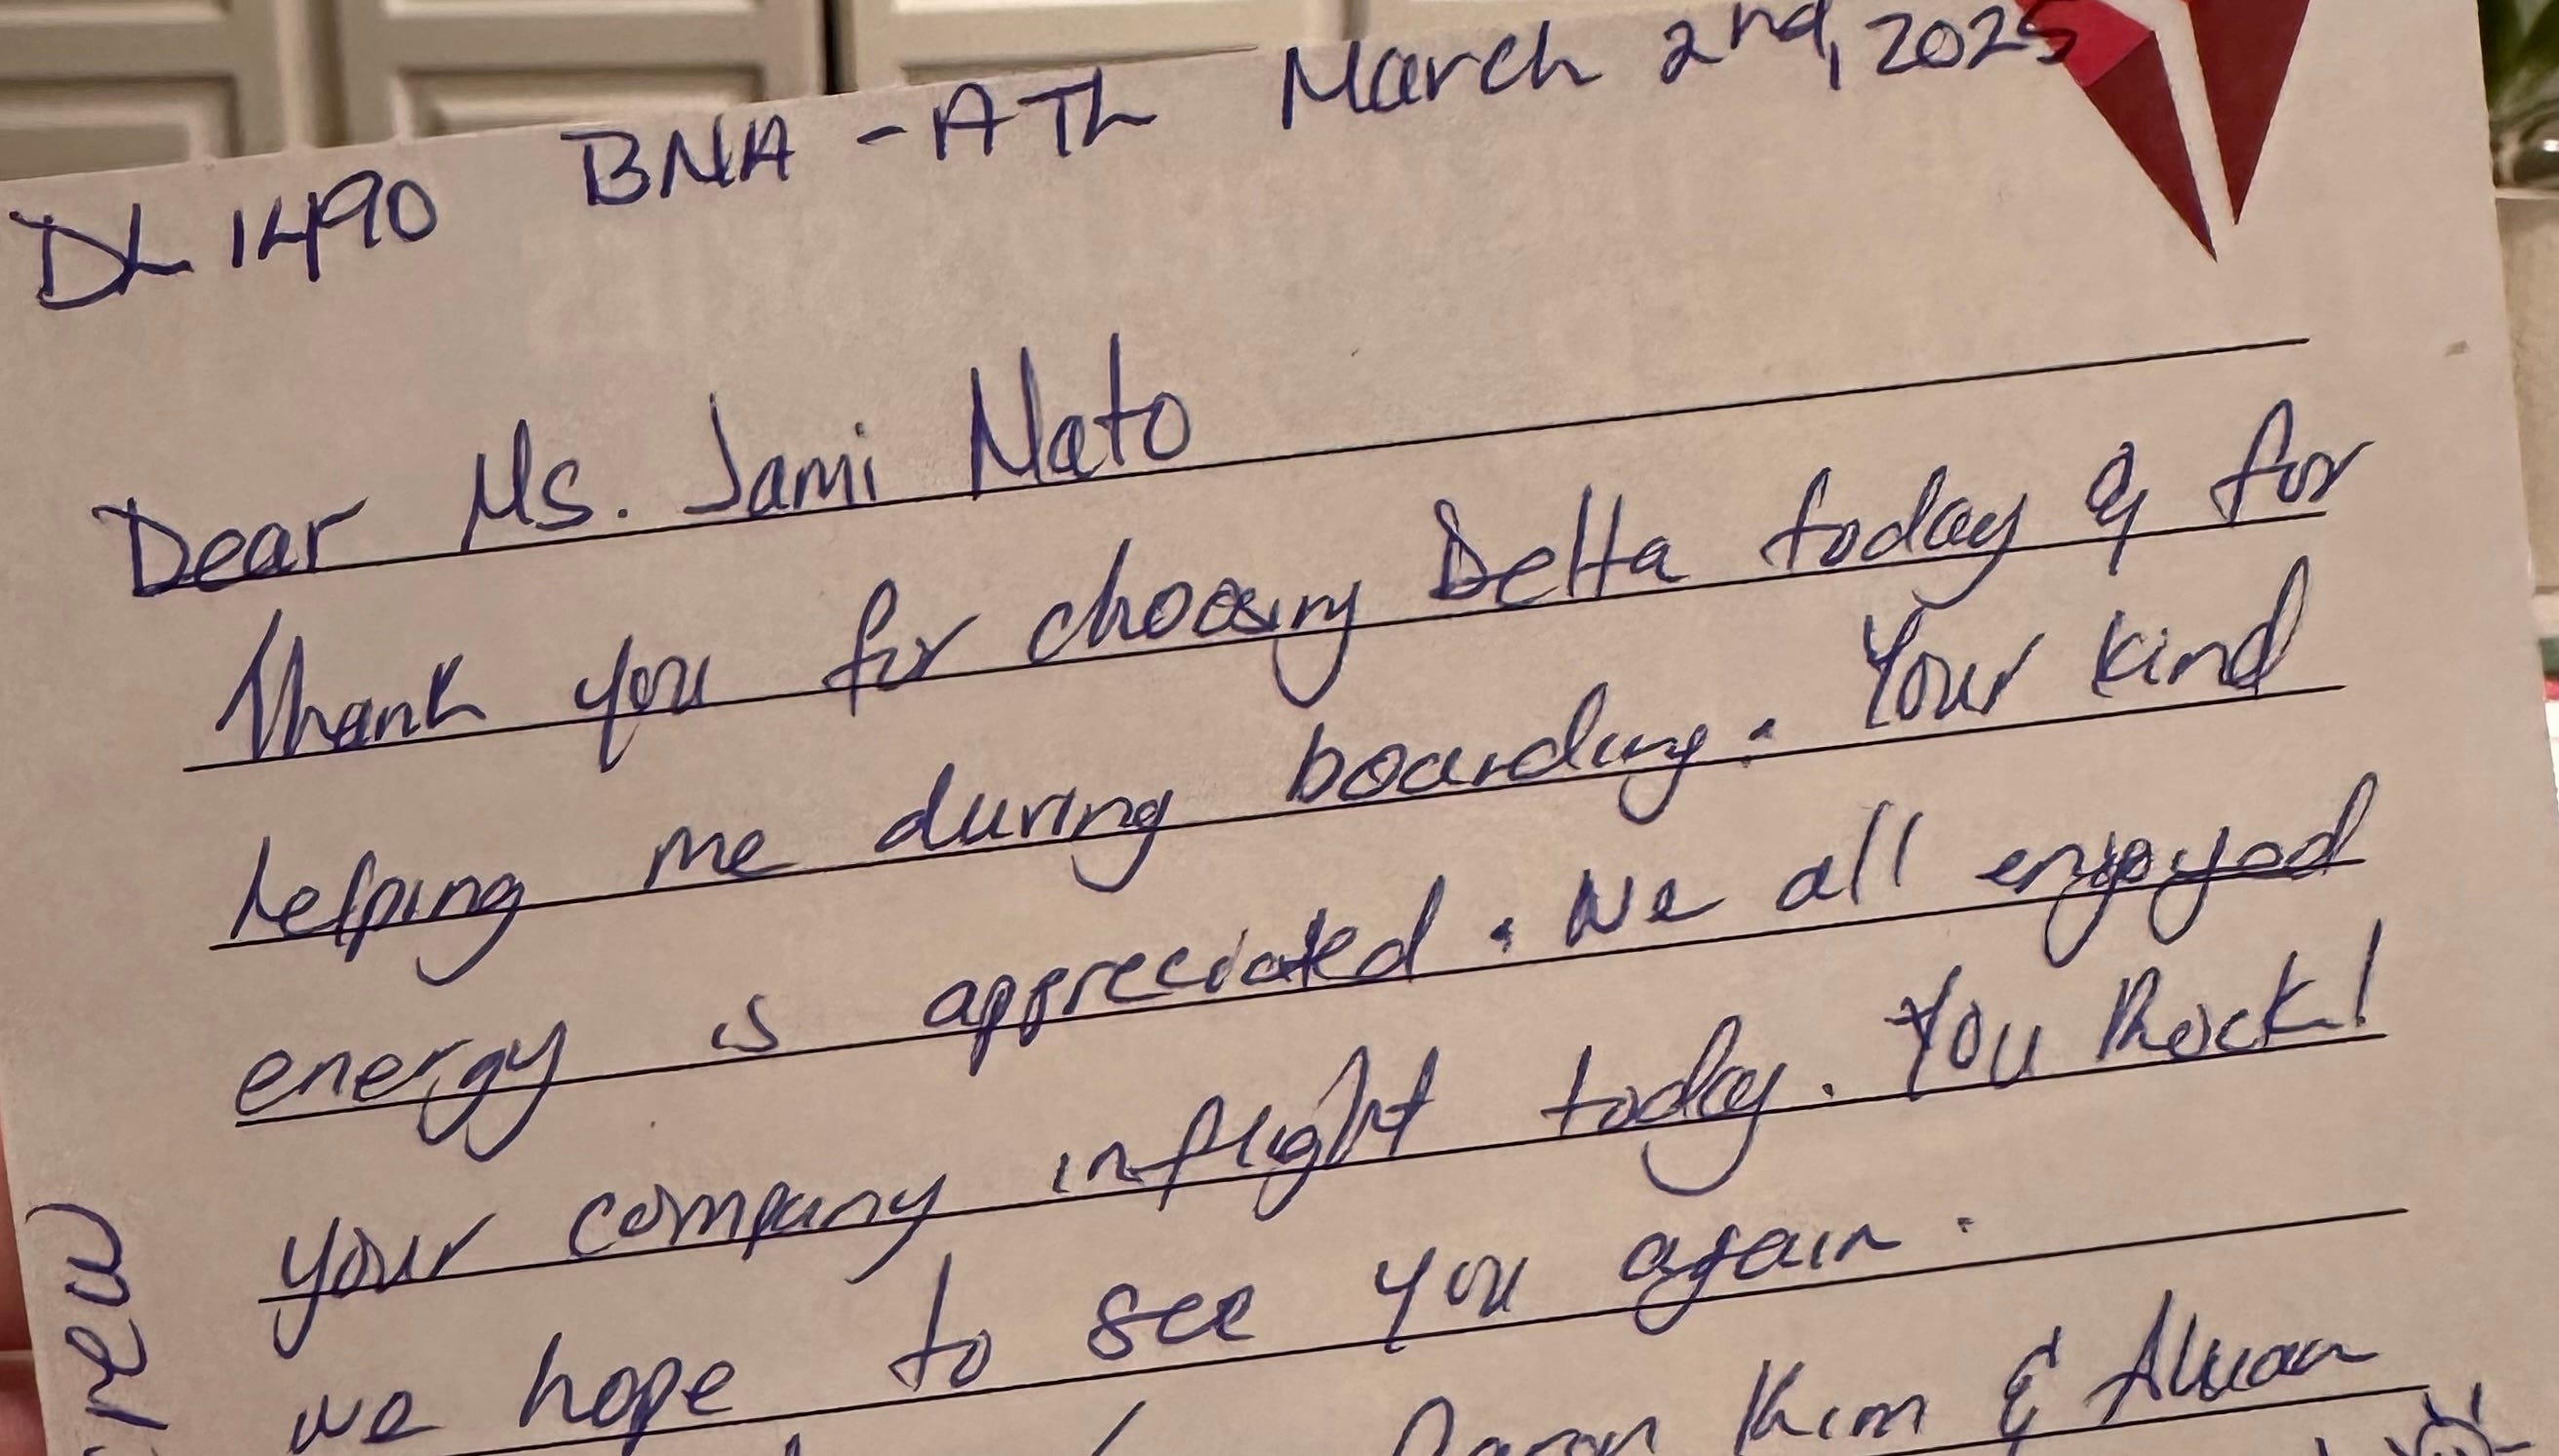 DL 1490 BNA - ATL March 2nd, 2025
Dear Ms. Jami Nato
Thank you for choosing Delta today & for
helping me during boarding. Your kind
energy is appreciated. We all enjoyed
your company inflight today. You Rock!
we hope to see you again.
Kim &